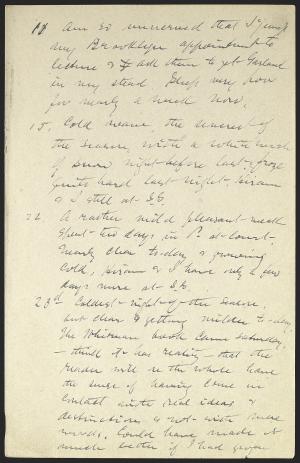 18 Am so unnerved that I jump
my Brooklyn appointment to
lecture & ask them to get Garland
in my stead. Sleep very poor
for nearly a week now.
15. Cold wave, the severest of
the season, with a white wash
of snow night before last - froze
quite hard last night. Hiram
& I still at S.S.
22. A rather mild pleasant week
spent two days in P. at court.
Nearly clear to-day & growing
cold. Hiram & I have only a few
days more at S.S.
23d Coldest night of the season,
but clear & getting milder to-day.
The Whitman book came Saturday,
- think it has reality - that the
reader will on the whole have
the sense of having come in
contact with real ideas &
distinctions & not with mere
words. Could have made it
much better if I had given